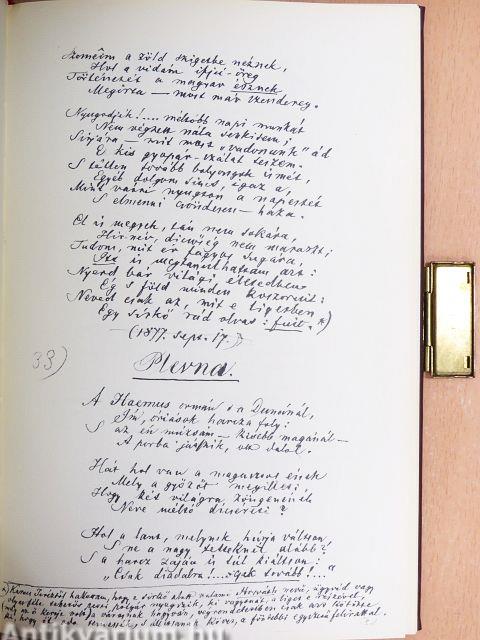 Szemeim a zöld szigetbe néznek,
Hol a vidám ifjú-öreg
Történetét a magyar észnek
Megírta — most már szendereg.
Nyugodjék!.... mélyebb napi munkát
Nem végzett nála senki sem;
Sírjára — mit most „vadonunk" ád
E kis gyopár-szálat teszem.
S tétlen tovább balyongok ismét,
Egyéb dolgom sincs, igaz a,
Mint várni nyugton a napestét
S elmenni csöndesen — haza.
El is megyek, tán nem sokára,
Hír-név, dicsőség nem maraszt;
Tudom, mit ér fagyos sugára,
is megtanulhatnám azt:
Nyerd bár világi életedben
E föld minden koszorúit:
Neved csak az, mit e ligetben
Egy sírkő rád olvas: fuit. *)
(1877. sept. 17.)
33)
Plevna.
A Haemus ormán s a Dunánál,
Ím, óriások harcza foly:
S az én múzsám — kisebb magánál —
A porba játszik, dalol.
Hát hol van a magasztos ének
Mely a győzőt megilleti,
Hogy két világra zöngenének
Neve méltó dicséreti?
Hol a lant, melynek húrja váltson,
S ne a nagy tetteknél alább?
S a harcz zaján is túl kiáltson:
„Csak diadalra!.... Csak tovább!...."
Antikvarium.hu